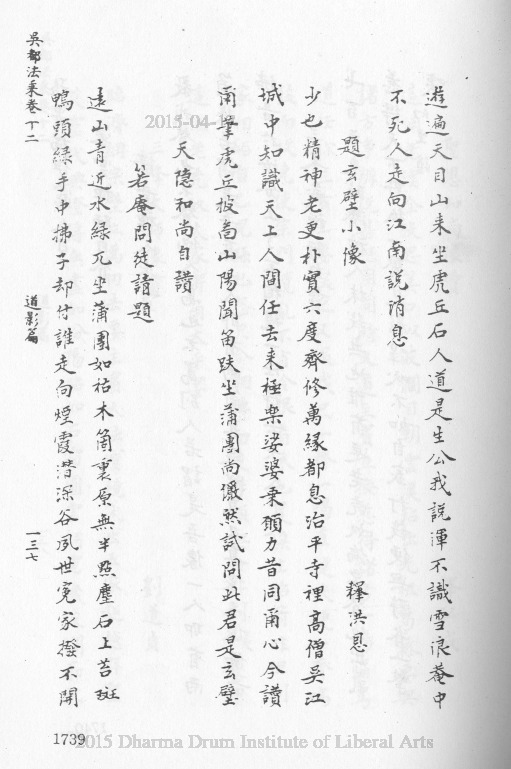 遊遍天目山來坐虎丘石人道是生公我說渾不識雪浪菴中
不死人走向江南說消息
題玄壁小像
釋洪恩
少也精神老更朴實六度齊修萬緣都息治平寺裡高僧吳江
城中知識天上人間任去來極樂娑婆乘願力昔同甬心今讚
甬筆虎丘披圖山陽聞笛趺坐蒲團尚儼然試問此君是玄壁
天隱和尚自讚
箬庵問徒請題
遠山青近水綠兀坐蒲團如祜木箇裏原無半點塵石上苔斑
鴨頭綠手中拂子却付誰走向煙霞潛深谷夙世寃家撥不開
吳都法乘卷下二
道影篇
一三七
1739
2015-04-1
2015 Dharma Drum Institute of Liberal Arts